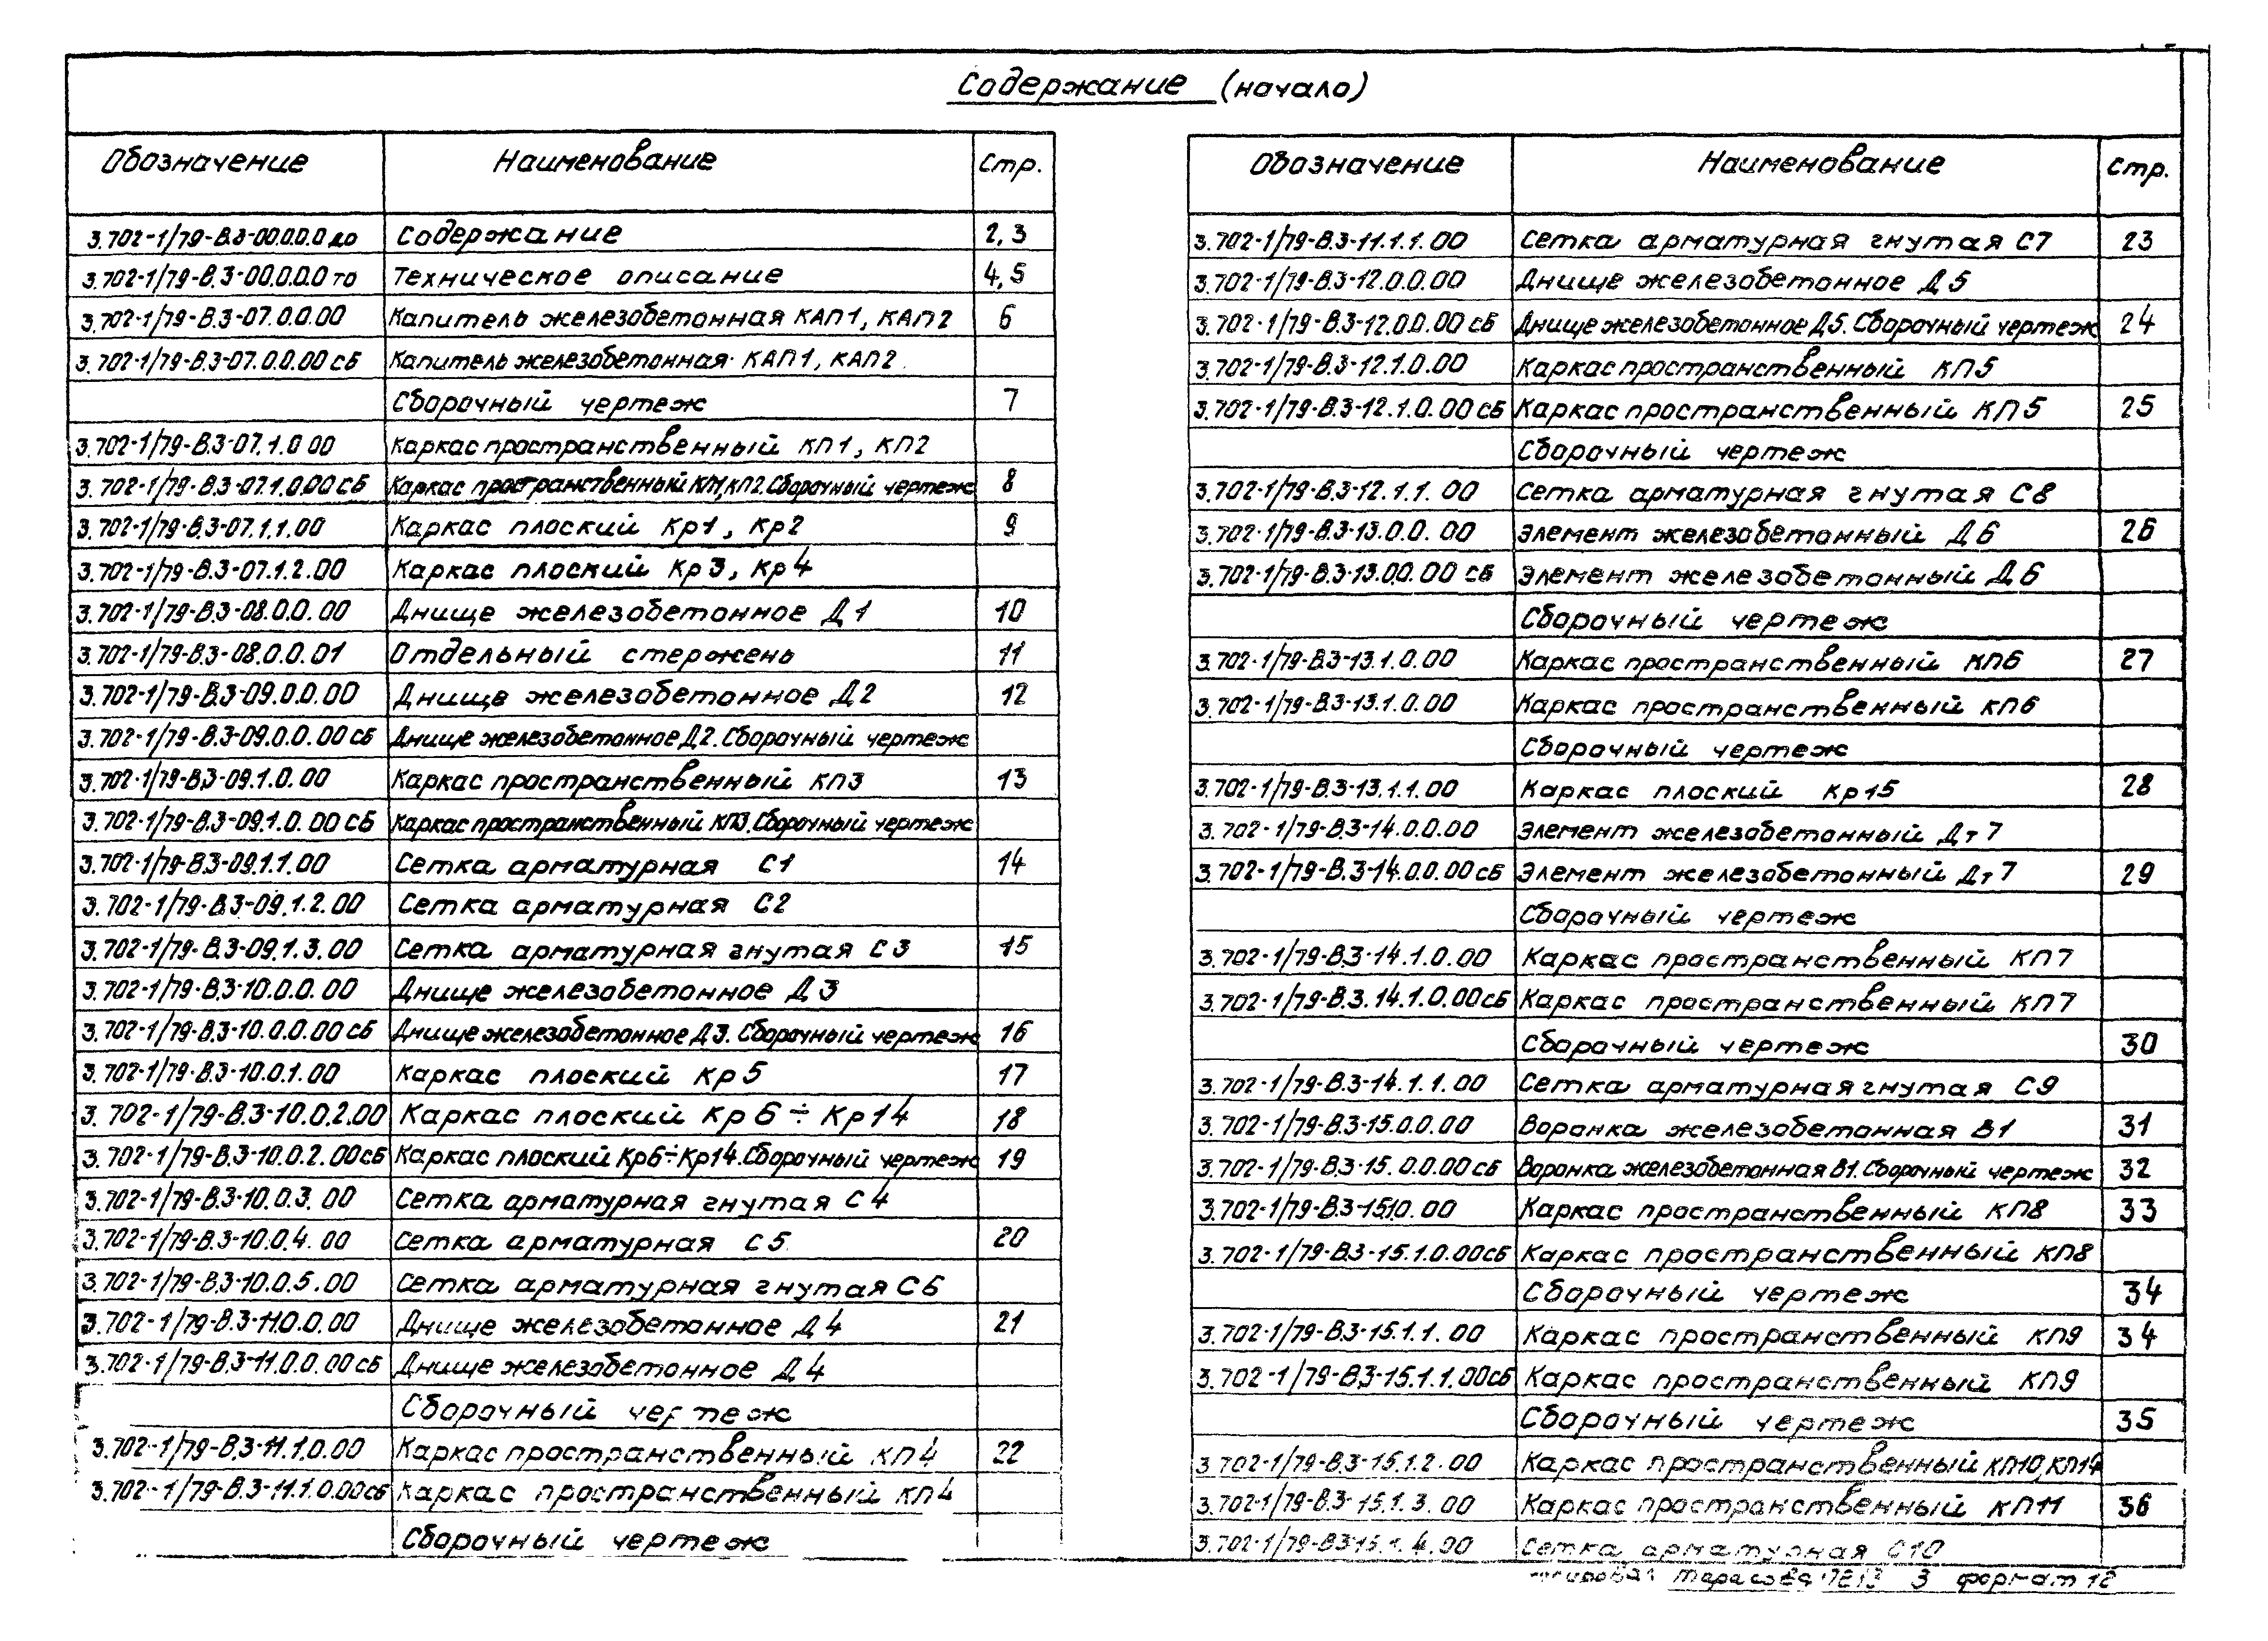 Содержание (начало)
Обозначение Наименование Стр.
3.702-1/79-В.3-00.0.0.0 до Содержание 2,3
3.702-1/79-В.3-00.0.0.0 то Техническое описание 4,5
3.702-1/79-В.3-07.0.0.00 Капитель железобетонная КАП1, КАП2 6
3.702-1/79-В.3-07.0.0.00 сб Капитель железобетонная КАП1, КАП2
Сборочный чертеж 7
3.702-1/79-В.3-07.1.0 00 Каркас пространственный КП1, КП2
3.702-1/79-В.3-07.1.0.00 сб Каркас пространственный КП1, КП2. Сборочный чертеж 8
3.702-1/79-В.3-07.1.1.00 Каркас плоский Кр1, Кр2 9
3.702-1/79-В.3-07.1.2.00 Каркас плоский Кр3, Кр4
3.702-1/79-В.3-08.0.0.00 Днище железобетонное Д1 10
3.702-1/79-В.3-08.0.0.01 Отдельный стержень 11
3.702-1/79-В.3-09.0.0.00 Днище железобетонное Д2 12
3.702-1/79-В.3-09.0.0.00 сб Днище железобетонное Д2. Сборочный чертеж
3.702-1/79-В.3-09.1.0.00 Каркас пространственный КП3 13
3.702-1/79-В.3-09.1.0.00 сб Каркас пространственный КП3. Сборочный чертеж
3.702-1/79-В.3-09.1.1.00 Сетка арматурная С1 14
3.702-1/79-В.3-09.1.2.00 Сетка арматурная С2
3.702-1/79-В.3-09.1.3.00 Сетка арматурная гнутая С3 15
3.702-1/79-В.3-10.0.0.00 Днище железобетонное Д3
3.702-1/79-В.3-10.0.0.00 сб Днище железобетонное Д3. Сборочный чертеж 16
3.702-1/79-В.3-10.0.1.00 Каркас плоский Кр5 17
3.702-1/79-В.3-10.0.2.00 Каркас плоский Кр6÷Кр14 18
3.702-1/79-В.3-10.0.2.00 сб Каркас плоский Кр6÷Кр14. Сборочный чертеж 19
3.702-1/79-В.3-10.0.3.00 Сетка арматурная гнутая С4
3.702-1/79-В.3-10.0.4.00 Сетка арматурная С5 20
3.702-1/79-В.3-10.0.5.00 Сетка арматурная гнутая С6
3.702-1/79-В.3-11.0.0.00 Днище железобетонное Д4 21
3.702-1/79-В.3-11.0.0.00 сб Днище железобетонное Д4
Сборочный чертеж
3.702-1/79-В.3-11.1.0.00 Каркас пространственный КП4 22
3.702-1/79-В.3-11.1.0.00 сб Каркас пространственный КП4
Сборочный чертеж
Обозначение Наименование Стр.
3.702-1/79-В.3-11.1.1.00 Сетка арматурная гнутая С7 23
3.702-1/79-В.3-12.0.0.00 Днище железобетонное Д5
3.702-1/79-В.3-12.0.0.00 сб Днище железобетонное Д5. Сборочный чертеж 24
3.702-1/79-В.3-12.1.0.00 Каркас пространственный КП5
3.702-1/79-В.3-12.1.0.00 сб Каркас пространственный КП5 25
Сборочный чертеж
3.702-1/79-В.3-12.1.1.00 Сетка арматурная гнутая С8
3.702-1/79-В.3-13.0.0.00 Элемент железобетонный Д6 26
3.702-1/79-В.3-13.0.0.00 сб Элемент железобетонный Д6
Сборочный чертеж
3.702-1/79-В.3-13.1.0.00 Каркас пространственный КП6 27
3.702-1/79-В.3-13.1.0.00 Каркас пространственный КП6
Сборочный чертеж
3.702-1/79-В.3-13.1.1.00 Каркас плоский Кр15 28
3.702-1/79-В.3-14.0.0.00 Элемент железобетонный Дт7
3.702-1/79-В.3-14.0.0.00 сб Элемент железобетонный Дт7 29
Сборочный чертеж
3.702-1/79-В.3-14.1.0.00 Каркас пространственный КП7
3.702-1/79-В.3.14.1.0.00 сб Каркас пространственный КП7
Сборочный чертеж 30
3.702-1/79-В.3-14.1.1.00 Сетка арматурная гнутая С9
3.702-1/79-В.3-15.0.0.00 Воронка железобетонная В1 31
3.702-1/79-В.3-15.0.0.00 сб Воронка железобетонная В1. Сборочный чертеж 32
3.702-1/79-В.3-15.1.0.00 Каркас пространственный КП8 33
3.702-1/79-В.3-15.1.0.00 сб Каркас пространственный КП8
Сборочный чертеж 34
3.702-1/79-В.3-15.1.1.00 Каркас пространственный КП9 34
3.702-1/79-В.3-15.1.1.00 сб Каркас пространственный КП9
Сборочный чертеж 35
3.702-1/79-В.3-15.1.2.00 Каркас пространственный КП10, КП14
3.702-1/79-В.3-15.1.3.00 Каркас пространственный КП11 36
3.702-1/79-В.3-15.1.4.00 Сетка арматурная С10
3 формат 12